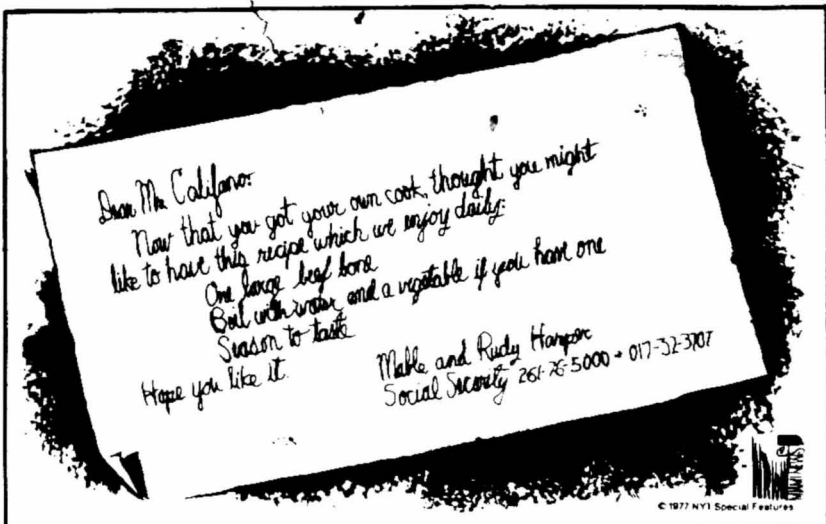 Dear Mr. Califano:
Now that you got your own cook, thought you might
like to have this recipe which we enjoy daily:
One large beef bone
Boil with water and a vegetable if you have one
Season to taste
Hope you like it.
Mable and Rudy Harper
Social Security 261-76-5000 + 017-32-3707
MIAMI NEWS
© 1977 NYT Special Features